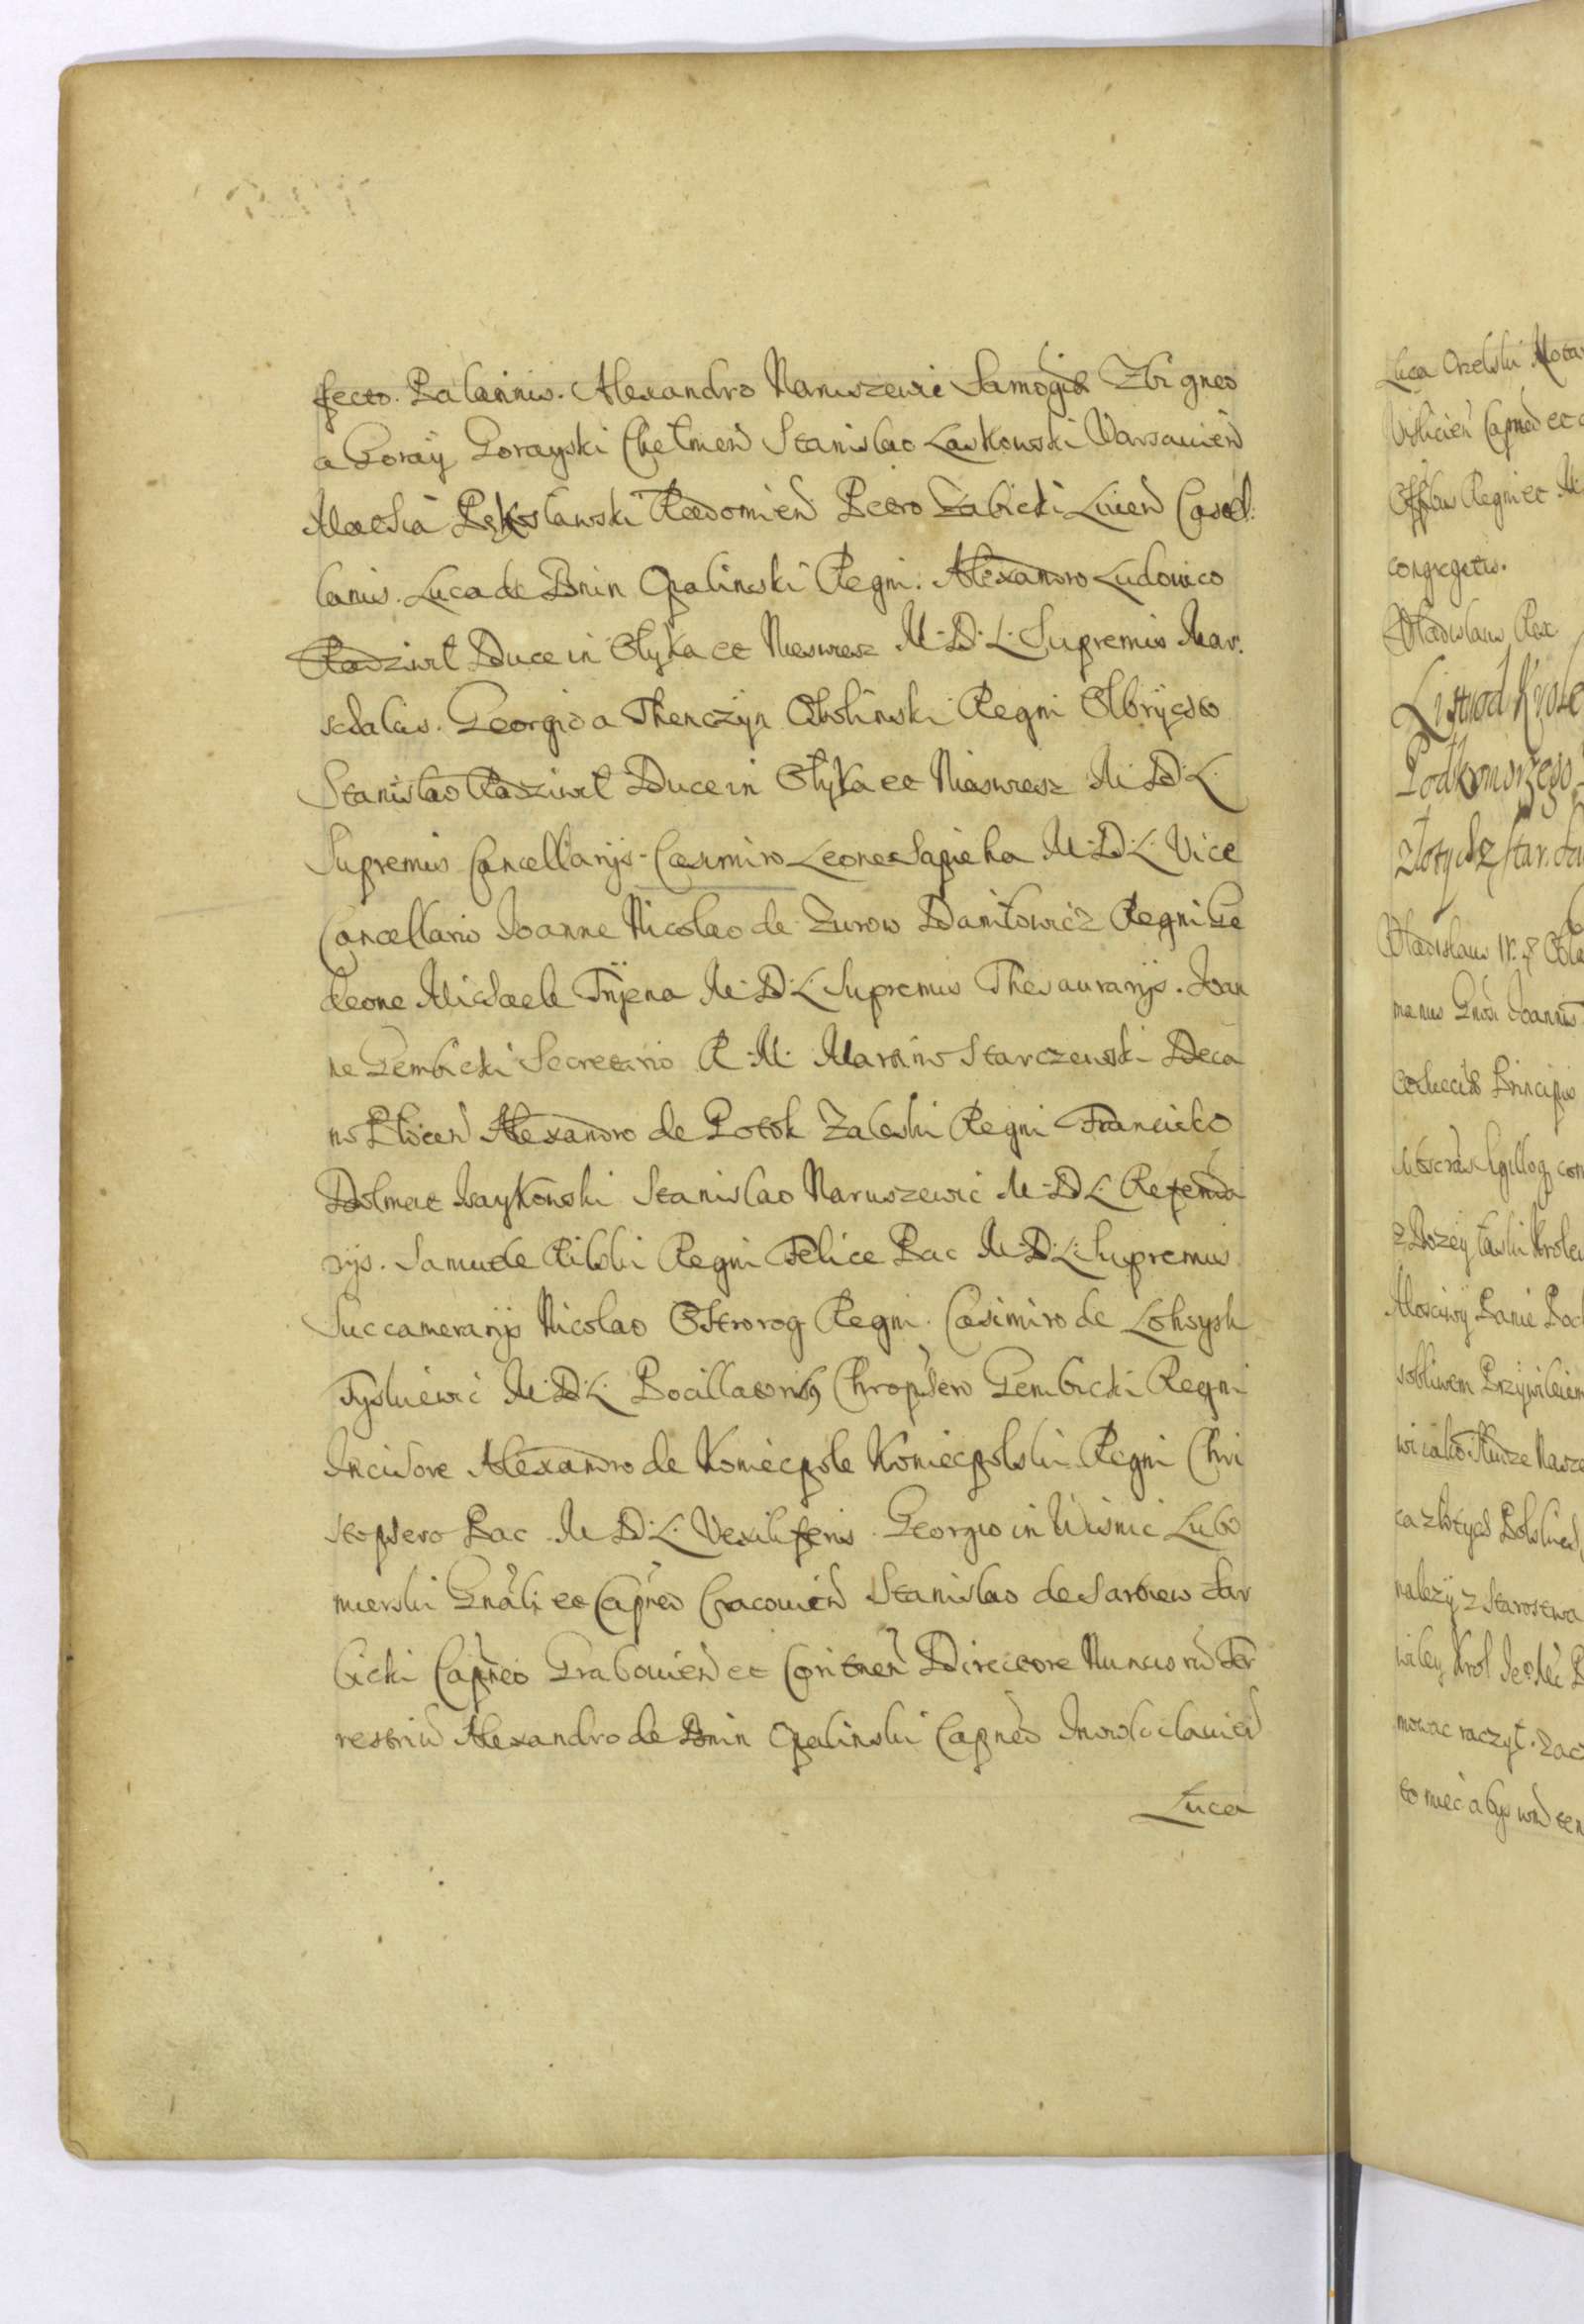 fecto. Palatinis. Alexandro Naruszewic Samogit Zbigneo
a Goraÿ Gorayski Chełmen Stanislao Laskowski Varsauien
Mathia Pękosławski Radomien Petro Żabicki Liuen Castel:
lanis. Luca de Bnin Opalinski Regni. Alexandro Ludouico
Radziwił Duce in Ołyka et Nieswiesz M. D. L. Supremis Mar:
schalcis. Georgio a Thenczÿn Ossolinski Regni Olbrÿcho
Stanislao Radziwił Duce in Ołyka et Nieswiesz M. D. L.
Supremis Cancellarijs. Casimiro Leone Sapieha M. D. L. Vice
Cancellario Joanne Nicolao de Zurow Daniłowicz Regni Ge
deone Michaele Tryzna M. D. L. Supremis Thesaurarijs. Joan
ne Gembicki Secretario R. M. Martino Starczewski Deca
no Plocen Alexandro de Potok Zaleski Regni Francisco
Dolmat Isaykowski Stanislao Naruszewic M. D. L. Referenda
rijs. Samuele Kilski Regni Felice Pac M. D. L. Supremis
Succamerarijs Nicolao Ostrorog Regni. Casimiro de Lohoysk
Tyskiewic M. D. L. Pocillatoribus Chrophero Gembicki Regni
Incisore Alexandro de Koniecpole Koniecpolski Regni Chri
stophero Pac M. D. L. Vexiliferis. Georgio in Wisnic Lubo
mierski Gnāli et Capneo Cracouien Stanislao de Sarbiew Sar
bicki Capneo Grabouien et Coritnen Directore Nuncio rū Ter
restriū Alexandro de Bnin Opalinski Capneo Inowlocłauien
Luca
Luca Orzelski Nota
Vislicien Capneo et
Offlbus Regni et M
congregatis.
Vladislaus Rex
List od Krole
Podkomorzego
Złotych z star.
Vladislaus IV.
manus Gnosi Joannis
Principis
z Bozey łaski Krolew
Mosciwÿ Panie Pod
sobliwem Przÿwileiem
ca złotych Polskich
nalezÿ z Starostwa
wiley Krol Je
mowac raczył. Zac
to miec abys